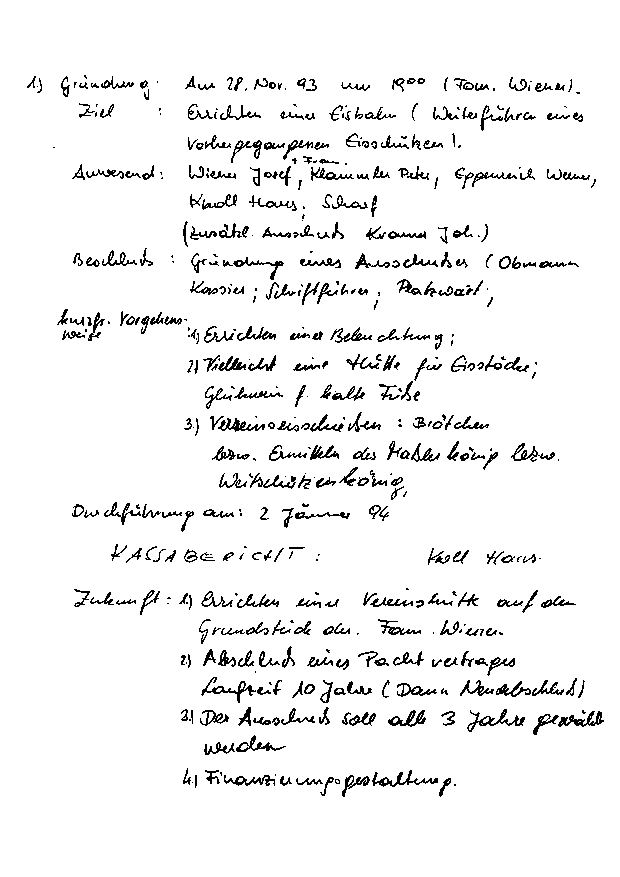 1) Gründung: Am 28. Nov. 93 um 19⁰⁰ (Fam. Wiener).
Ziel : Errichten einer Eisbahn (Weiterführen eines
vorhergegangenen Eisschützen).
+ Frau
Anwesend: Wiener Josef, Klammler Peter, Eppenreich Werner,
Knoll Hans, Scharf
(zusätzl. Ausschuß Kramer Joh.)
Beschluß : Gründung eines Ausschußes (Obmann
Kassier; Schriftführer; Platzwart;
kurzfr. Vorgehens-
weise 1) Errichten einer Beleuchtung;
2) Vielleicht eine Hütte für Eisstöcke;
Glühwein f. kalte Füße
3.) Vereinseisschießen : Brötchen
bzw. Ermitteln des Maßlerkönig bzw.
Weitschützenkönig,
Durchführung am: 2 Jänner 94
KASSABERICHT : Knoll Hans
Zukunft : 1) Errichten einer Vereinshütte auf den
Grundstück der. Fam. Wiener
2) Abschluß eines Pachtvertrages
Laufzeit 10 Jahre (Dann Neuabschluß)
3.) Der Ausschuß soll alle 3 Jahre gewählt
werden
4.) Finanzierungsgestaltung.